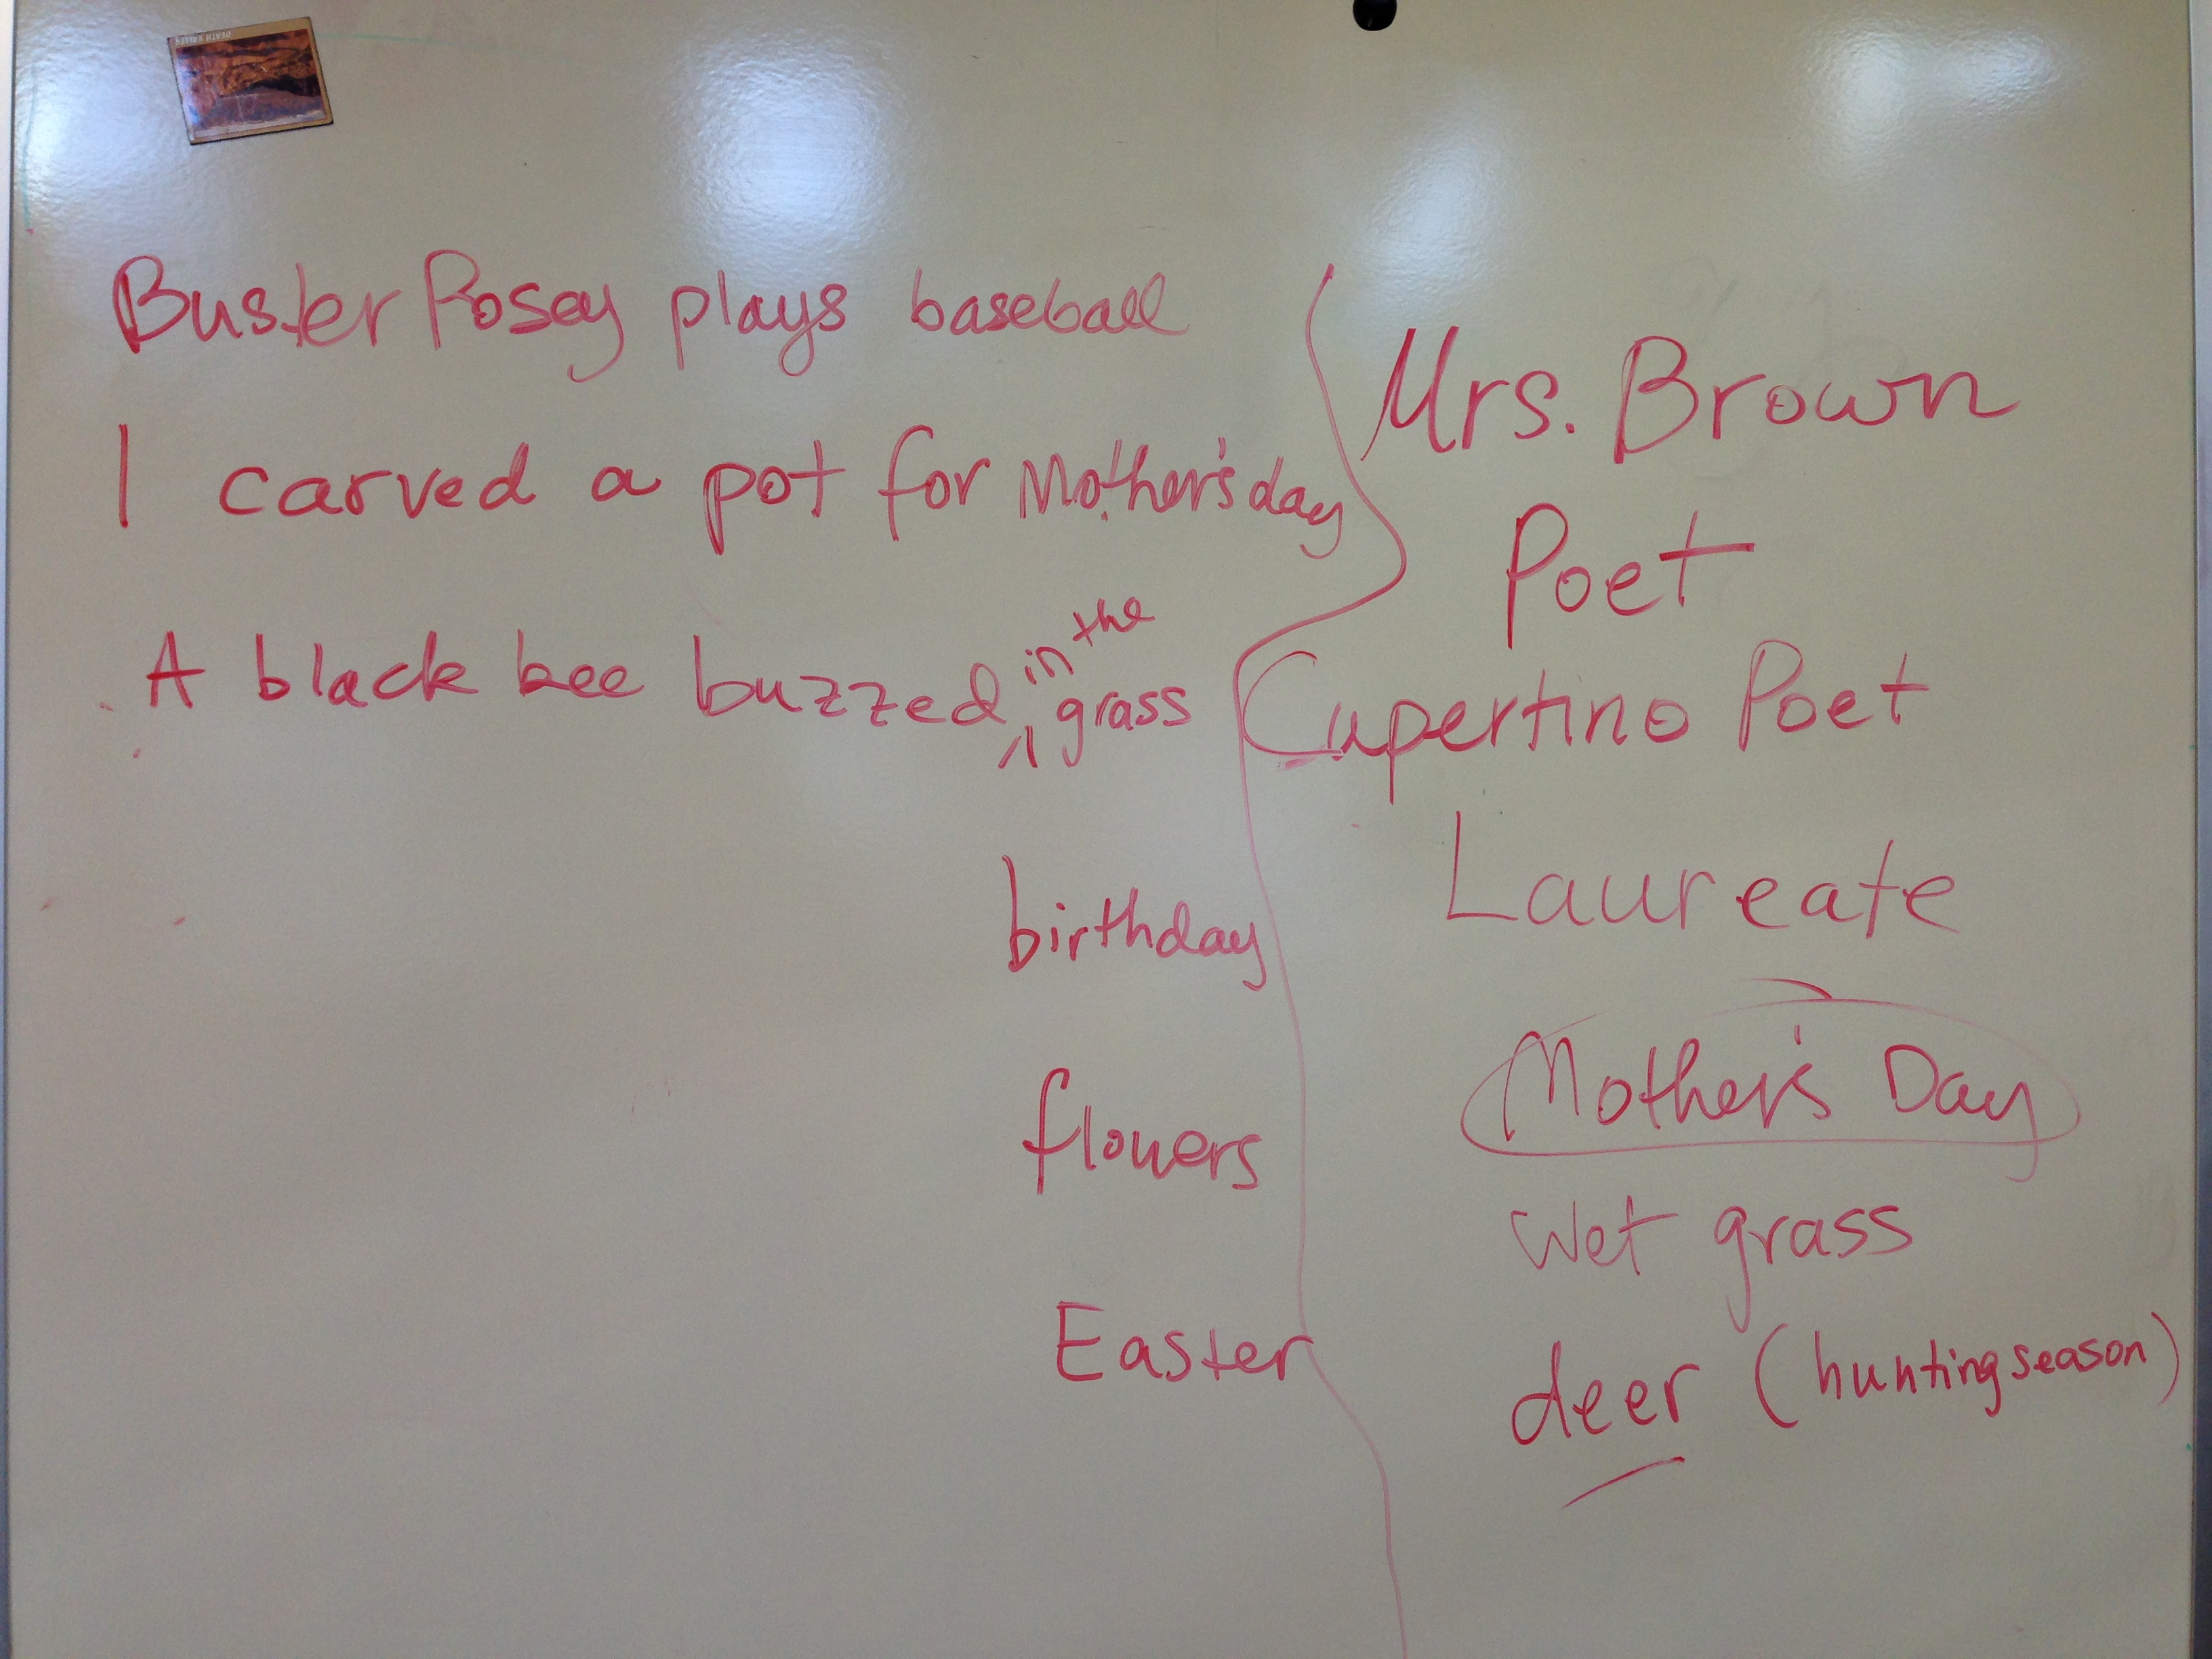 Buster Posey plays baseball
I carved a pot for Mother's day
A black bee buzzed in the grass
birthday
flowers
Easter
Mrs. Brown
Poet
Cupertino Poet
Laureate
Mother's Day
wet grass
deer (hunting season)
DEATH VALLEY